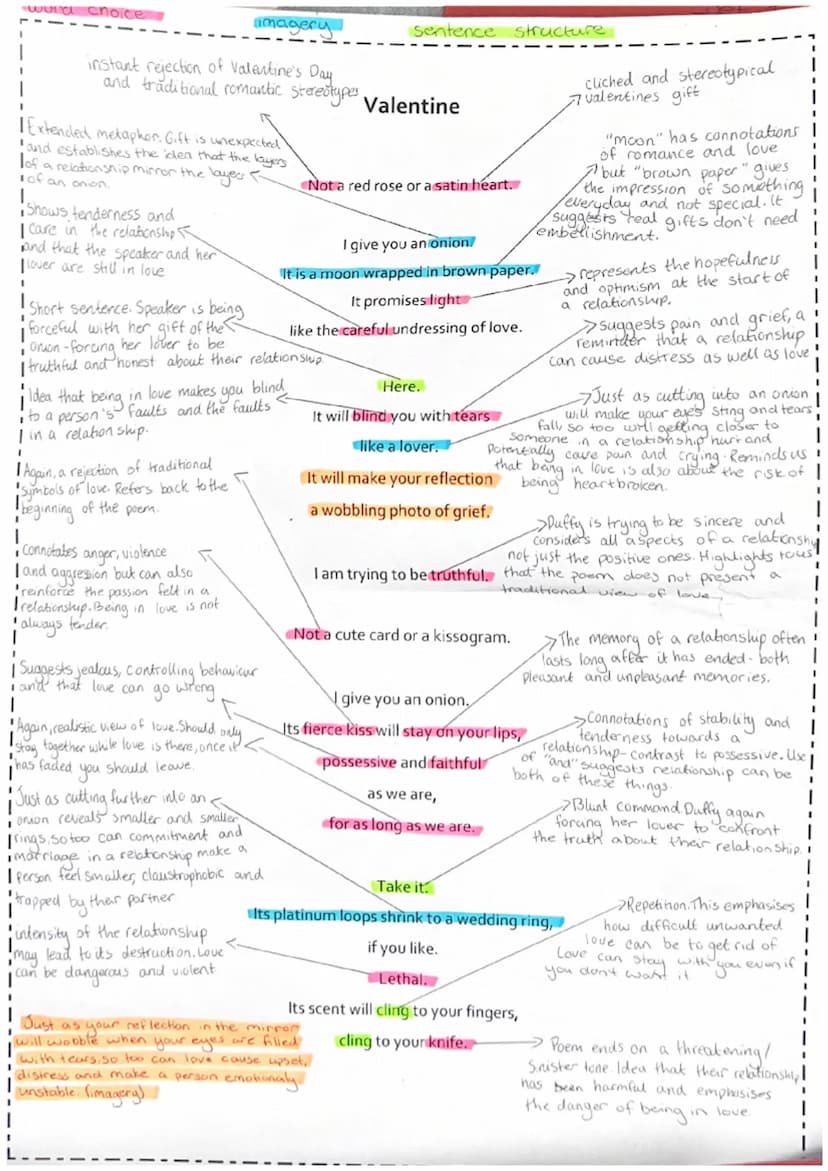 word choice
imagery
sentence structure
instant rejection of Valentine's Day
and traditional romantic stereotypes
cliched and stereotypical
valentines gift
Valentine
Extended metaphor. Gift is unexpected
and establishes the idea that the layers
of a relationship mirror the layers
of an onion.
"moon" has connotations
of romance and love
but "brown paper" gives
the impression of something
everyday and not special. It
suggests real gifts don't need
embellishment.
Not a red rose or a satin heart.
Shows tenderness and
care in the relationship
and that the speaker and her
lover are still in love
I give you an onion.
It is a moon wrapped in brown paper.
It promises light
like the careful undressing of love.
represents the hopefulness
and optimism at the start of
a relationship.
Short sentence. Speaker is being
forceful with her gift of the
onion-forcing her lover to be
truthful and honest about their relationship.
suggests pain and grief, a
reminder that a relationship
can cause distress as well as love
Here.
Idea that being in love makes you blind
to a person's faults and the faults
in a relationship.
It will blind you with tears
like a lover.
It will make your reflection
a wobbling photo of grief.
Just as cutting into an onion
will make your eyes sting and tears
fall so too will getting closer to
someone in a relationship hurt and
potentially cause pain and crying. Reminds us
that being in love is also about the risk of
being heartbroken.
Again, a rejection of traditional
symbols of love. Refers back to the
beginning of the poem.
Duffy is trying to be sincere and
considers all aspects of a relationship
not just the positive ones. Highlights to us
that the poem does not present a
traditional view of love
Connotates anger, violence
and aggression but can also
reinforce the passion felt in a
relationship. Being in love is not
always tender.
I am trying to be truthful.
Not a cute card or a kissogram.
The memory of a relationship often
lasts long after it has ended- both
pleasant and unpleasant memories.
Suggests jealous, controlling behaviour
and that love can go wrong
I give you an onion.
Its fierce kiss will stay on your lips,
possessive and faithful
as we are,
for as long as we are.
Again, realistic view of love. Should only
stay together while love is there, once it
has faded you should leave.
Connotations of stability and
tenderness towards a
relationship-contrast to possessive. Use
of "and" suggests relationship can be
both of these things.
Just as cutting further into an
onion reveals smaller and smaller
rings, so too can commitment and
marriage in a relationship make a
person feel smaller, claustrophobic and
trapped by their partner
Blunt command. Duffy again
forcing her lover to confront
the truth about their relationship.
Take it.
Its platinum loops shrink to a wedding ring,
if you like.
Lethal.
Its scent will cling to your fingers,
cling to your knife.
Repetition. This emphasises
how difficult unwanted
love can be to get rid of
Love can stay with you even if
you don't want it
intensity of the relationship
may lead to its destruction. Love
can be dangerous and violent
Just as your reflection in the mirror
will wobble when your eyes are filled
with tears, so too can love cause upset,
distress and make a person emotionaly
unstable. (imagery)
Poem ends on a threatening/
sinister tone Idea that their relationship
has been harmful and emphasises
the danger of being in love